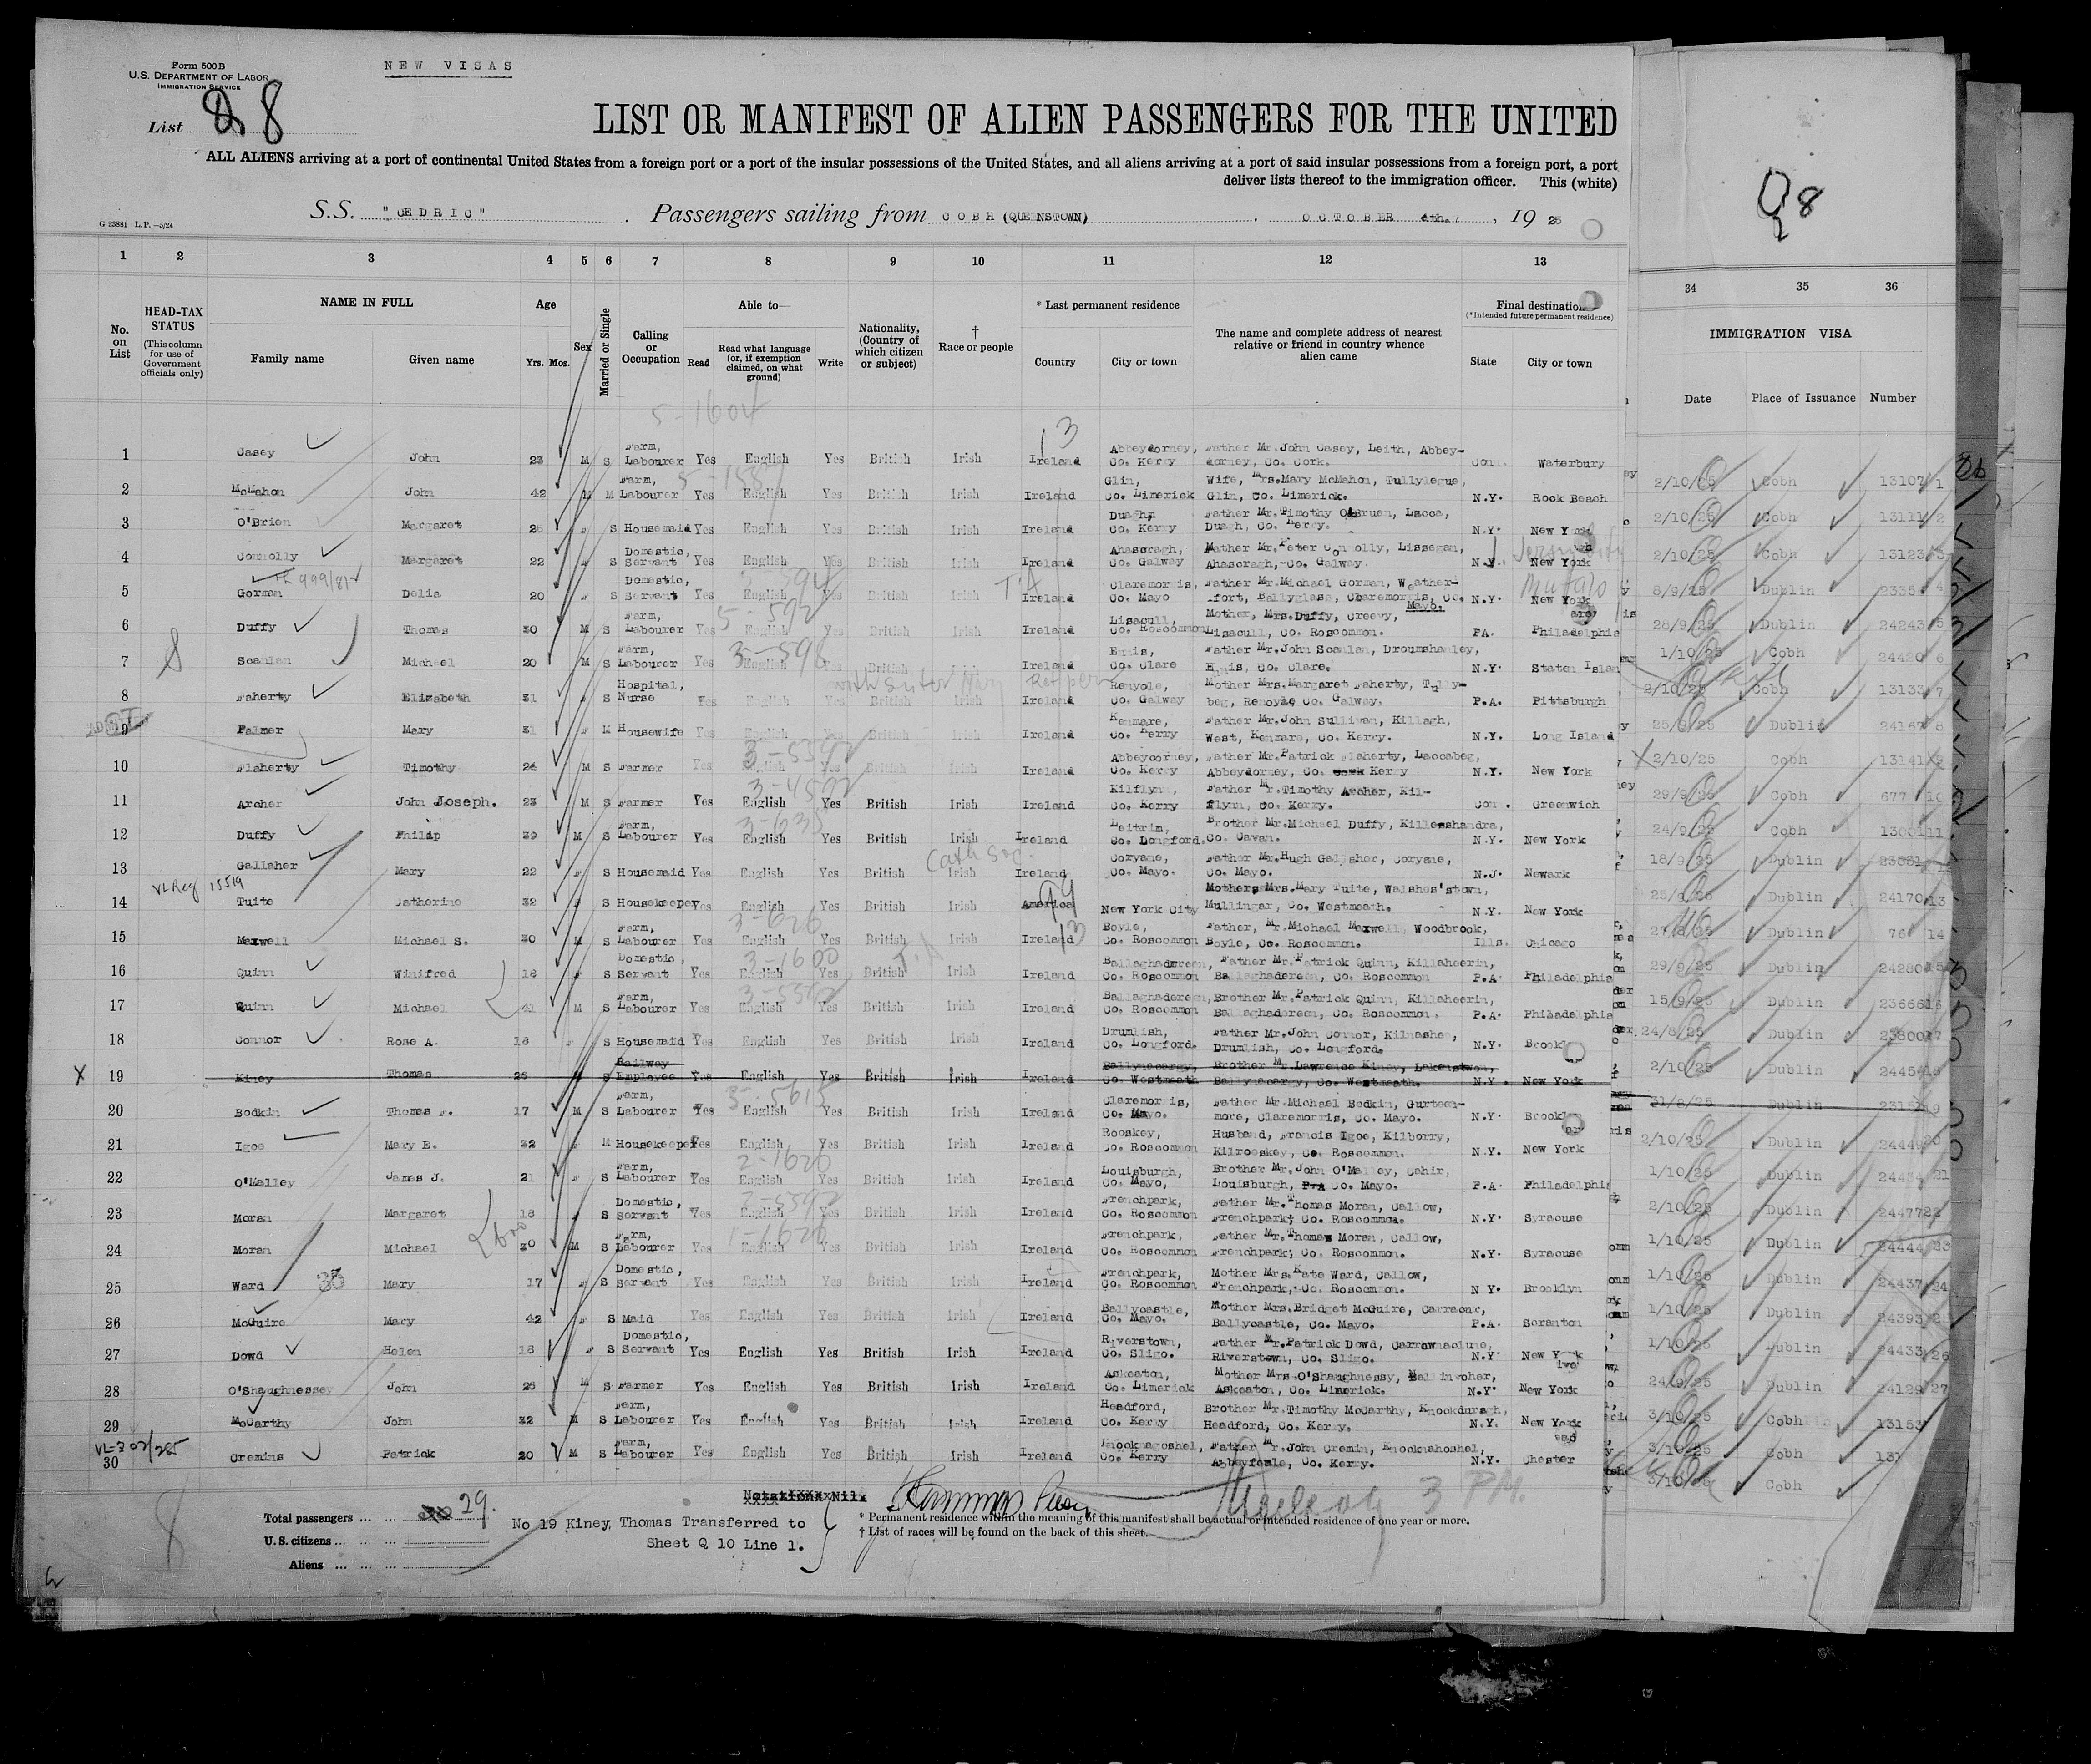 Form 500 B
U.S. DEPARTMENT OF LABOR
IMMIGRATION SERVICE
NEW VISAS
List Q 8
LIST OR MANIFEST OF ALIEN PASSENGERS FOR THE UNITED
ALL ALIENS arriving at a port of continental United States from a foreign port or a port of the insular possessions of the United States, and all aliens arriving at a port of said insular possessions from a foreign port, a port
deliver lists thereof to the immigration officer. This (white)
Q 8
G 23881 L.P.—5/24
S.S. "CEDRIC" . Passengers sailing from COBH (QUEENSTOWN) , OCTOBER 4th. , 19 25
1 2 3 4 5 6 7 8 9 10 11 12 13 34 35 36
No. on List
HEAD-TAX STATUS (This column for use of Government officials only)
NAME IN FULL
Family name Given name
Age Yrs. Mos.
Sex
Married or Single
Calling or Occupation
Able to—
Read Read what language (or, if exemption claimed, on what ground) Write
Nationality, (Country of which citizen or subject)
† Race or people
* Last permanent residence
Country City or town
The name and complete address of nearest relative or friend in country whence alien came
Final destination (*Intended future permanent residence)
State City or town
IMMIGRATION VISA
Date Place of Issuance Number
5-1604
1 Casey John 23 M S Farm, Labourer Yes English Yes British Irish Ireland Abbeydorney, Co. Kerry Father Mr. John Casey, Leith, Abbeydorney, Co. Cork. Con. Waterbury
2 McMahon John 42 M M Farm, Labourer Yes English Yes British Irish Ireland Glin, Co. Limerick Wife, Mrs. Mary McMahon, Tullylegue, Glin, Co. Limerick. N.Y. Rock Beach
3 O'Brien Margaret 26 S Housemaid Yes English Yes British Irish Ireland Duagh, Co. Kerry Father Mr. Timothy O'Bruen, Lacca, Duagh, Co. Kerry. N.Y. New York
4 Connolly Margaret 22 S Domestic, Servant Yes English Yes British Irish Ireland Ahascragh, Co. Galway Father Mr. Peter Connolly, Lissegan, Ahascragh, Co. Galway. N.Y. New York
5 Gorman Delia 20 S Domestic, Servant Yes English Yes British Irish Ireland Claremorris, Co. Mayo Father Mr. Michael Gorman, Weatherfort, Ballyglass, Claremorris, Co. Mayo. N.Y. New York
6 Duffy Thomas 30 M S Farm, Labourer Yes English Yes British Irish Ireland Lisacull, Co. Roscommon Mother, Mrs. Duffy, Creevy, Lisacull, Co. Roscommon. PA. Philadelphia
7 Scanlan Michael 20 M S Farm, Labourer Yes English Yes British Irish Ireland Ennis, Co. Clare Father Mr. John Scanlan, Droumshanley, Ennis, Co. Clare. N.Y. Staten Islan
8 Faherty Elizabeth 31 S Hospital, Nurse Yes English Yes British Irish Ireland Renyole, Co. Galway Mother Mrs. Margaret Faherty, Tullybeg, Renoyle Co. Galway. P.A. Pittsburgh
9 Palmer Mary 31 M Housewife Yes English Yes British Irish Ireland Kenmare, Co. Kerry Father Mr. John Sullivan, Killagh, West, Kenmare, Co. Kerry. N.Y. Long Island
10 Flaherty Timothy 24 M S Farmer Yes English Yes British Irish Ireland Abbeydorney, Co. Kerry Father Mr. Patrick Flaherty, Laccabeg, Abbeydorney, Co. Cork Kerry N.Y. New York
11 Archer John Joseph. 23 M S Farmer Yes English Yes British Irish Ireland Kilflynn, Co. Kerry Father Mr. Timothy Archer, Kilflynn, Co. Kerry. Con. Greenwich
12 Duffy Philip 39 M S Farm, Labourer Yes English Yes British Irish Ireland Leitrim, Co. Longford. Brother Mr. Michael Duffy, Killeshandra, Co. Cavan. N.Y. New York
13 Gallaher Mary 22 S Housemaid Yes English Yes British Irish Ireland Coryane, Co. Mayo. Father Mr. Hugh Gallaher, Coryane, Co. Mayo. N.J. Newark
14 Tuite Catherine 32 S Housekeeper Yes English Yes British Irish America New York City Mother Mrs. Mary Tuite, Walshes'stown, Mullingar, Co. Westmeath. N.Y. New York
15 Maxwell Michael S. 30 M S Farm, Labourer Yes English Yes British Irish Ireland Boyle, Co. Roscommon Father, Mr. Michael Maxwell, Woodbrook, Boyle, Co. Roscommon. Ills. Chicago
16 Quinn Winifred 18 S Domestic, Servant Yes English Yes British Irish Ireland Ballaghadereen, Co. Roscommon Father Mr. Patrick Quinn, Killaheerin, Ballaghadereen, Co. Roscommon P.A. Philadelphia
17 Quinn Michael 41 M S Farm, Labourer Yes English Yes British Irish Ireland Ballaghadereen, Co. Roscommon Brother Mr. Patrick Quinn, Killaheerin, Ballaghadereen, Co. Roscommon. P.A. Philadelphia
18 Connor Rose A. 18 S Housemaid Yes English Yes British Irish Ireland Drumlish, Co. Longford. Father Mr. John Connor, Kilnashee, Drumlish, Co. Longford. N.Y. Brookl
X 19 Kiney Thomas 25 M S Railway Employee Yes English Yes British Irish Ireland Ballynacargy, Co. Westmeath Brother Mr. Lawrence Kiney, Lakenstwon, Ballynacargy, Co. Westmeath. N.Y. New York
20 Bodkin Thomas F. 17 M S Farm, Labourer Yes English Yes British Irish Ireland Claremorris, Co. Mayo. Father Mr. Michael Bodkin, Gurteenmore, Claremorris, Co. Mayo. N.Y. Brookl
21 Igoe Mary E. 32 M Housekeeper Yes English Yes British Irish Ireland Rooskey, Co. Roscommon Husband, Francis Igoe, Kilborry, Kilrooskey, Co. Roscommon. N.Y. New York
22 O'Malley James J. 21 S Farm, Labourer Yes English Yes British Irish Ireland Louisburgh, Co. Mayo, Brother Mr. John O'Malley, Cahir, Louisburgh, Co. Mayo. P.A. Philadelphia
23 Moran Margaret 18 S Domestic, Servant Yes English Yes British Irish Ireland Frenchpark, Co. Roscommon Father Mr. Thomas Moran, Callow, Frenchpark, Co. Roscommon. N.Y. Syracuse
24 Moran Michael 30 M S Farm, Labourer Yes English Yes British Irish Ireland Frenchpark, Co. Roscommon Father Mr. Thomas Moran, Callow, Frenchpark, Co. Roscommon. N.Y. Syracuse
25 Ward Mary 17 S Domestic, Servant Yes English Yes British Irish Ireland Frenchpark, Co. Roscommon Mother Mrs. Kate Ward, Callow, Frenchpark, Co. Roscommon. N Y. Brooklyn
26 McGuire Mary 42 S Maid Yes English Yes British Irish Ireland Ballycastle, Co. Mayo. Mother Mrs. Bridget McGuire, Carraouc, Ballycastle, Co. Mayo. P.A. Scranton
27 Dowd Helen 18 S Domestic, Servant Yes English Yes British Irish Ireland Riverstown, Co. Sligo. Father Mr. Patrick Dowd, Carrownaclune, Riverstown, Co. Sligo. N.Y. New York
28 O'Shaughnessey John 25 M S Farmer Yes English Yes British Irish Ireland Askeaton, Co. Limerick Mother Mrs. O'Shaughnessy, Ballinvoher, Askeaton, Co. Limerick. N.Y. New York
29 McCarthy John 32 M S Farm, Labourer Yes English Yes British Irish Ireland Headford, Co. Kerry Brother Mr. Timothy McCarthy, Knockduragh, Headford, Co. Kerry. N.Y. New York
30 Cremins Patrick 20 M S Farm, Labourer Yes English Yes British Irish Ireland Knocknagoshel, Co. Kerry Father Mr. John Cremin, Knocknahoshel, Abbeyfeale, Co. Kerry. N.Y. Chester
2/10/25 Cobh 13107 1
2/10/25 Cobh 13111 2
2/10/25 Cobh 13123 3
8/9/25 Dublin 2335 4
28/9/25 Dublin 24243 5
1/10/25 Cobh 24420 6
2/10/25 Cobh 13133 7
25/9/25 Dublin 24167 8
X 2/10/25 Cobh 13141 9
29/9/25 Cobh 677 10
24/9/25 Cobh 13001 11
18/9/25 Dublin 23881 12
25/9/25 Dublin 24170 13
27/8/25 Dublin 76 14
29/9/25 Dublin 24280 15
15/9/25 Dublin 23666 16
24/8/25 Dublin 23800 17
2/10/25 Dublin 2445 18
31/8/25 Dublin 2315 19
2/10/25 Dublin 24449 20
1/10/25 Dublin 24434 21
2/10/25 Dublin 24477 22
1/10/25 Dublin 24444 23
1/10/25 Dublin 24437 24
1/10/25 Dublin 24393 25
1/10/25 Dublin 24433 26
24/9/25 Dublin 24129 27
3/10/25 Cobh 13153
3/10/25 Cobh 131
3/10/25 Cobh
Total passengers ... ... 30 29.
U.S. citizens ... ... ...
Aliens ... ... ...
Notations Nil.
No 19 Kiney, Thomas Transferred to
Sheet Q 10 Line 1.
3 PM.
* Permanent residence within the meaning of this manifest shall be actual or intended residence of one year or more.
† List of races will be found on the back of this sheet.